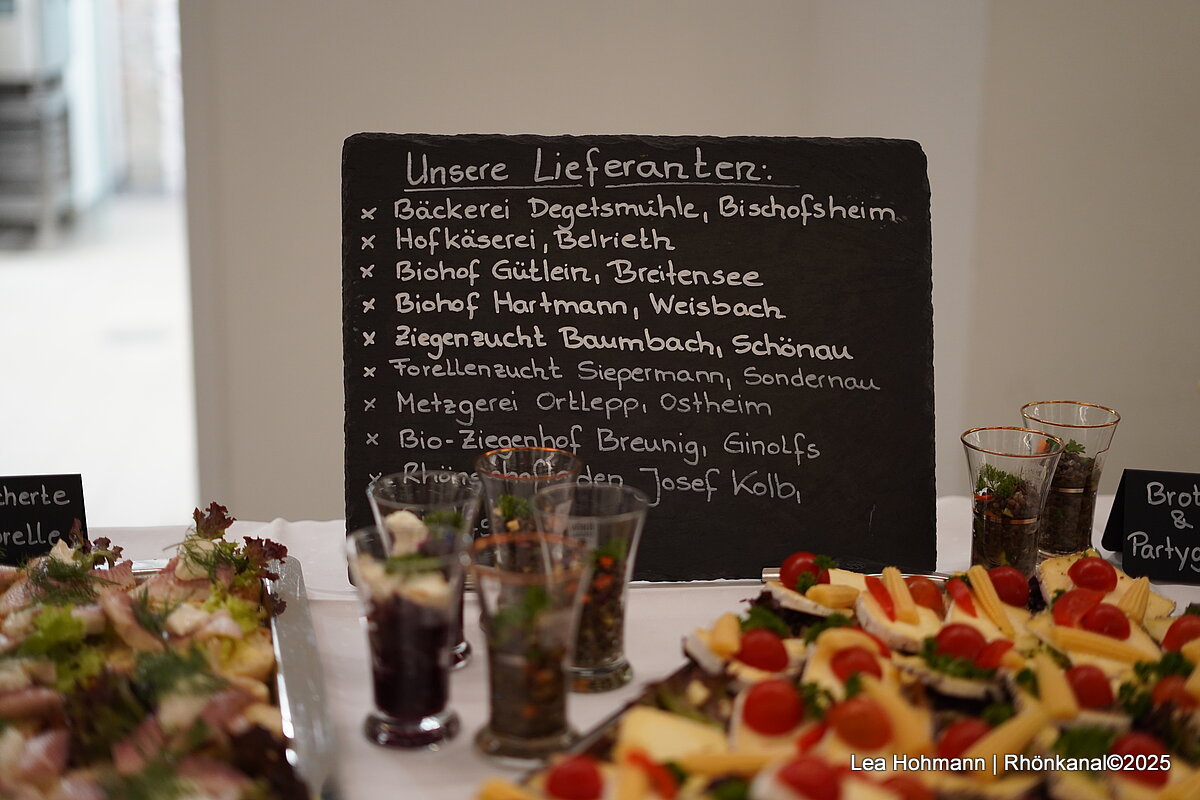 Unsere Lieferanten:
x Bäckerei Degetsmühle, Bischofsheim
x Hofkäserei, Belrieth
x Biohof Gütlein, Breitensee
x Biohof Hartmann, Weisbach
x Ziegenzucht Baumbach, Schönau
x Forellenzucht Siepermann, Sondernau
x Metzgerei Ortlepp, Ostheim
x Bio-Ziegenhof Breunig, Ginolfs
x Josef Kolb,
cherte
relle
Brot
&
Partyg
Lea Hohmann | Rhönkanal©2025